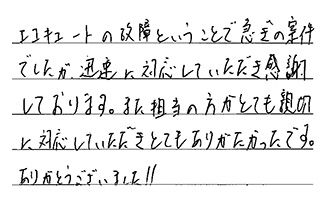 エコキュートの故障ということで急ぎの案件
でしたが、迅速に対応していただき感謝
しております。また担当の方がとても親切
に対応していただきとてもありがたかったです。
ありがとうございました!!